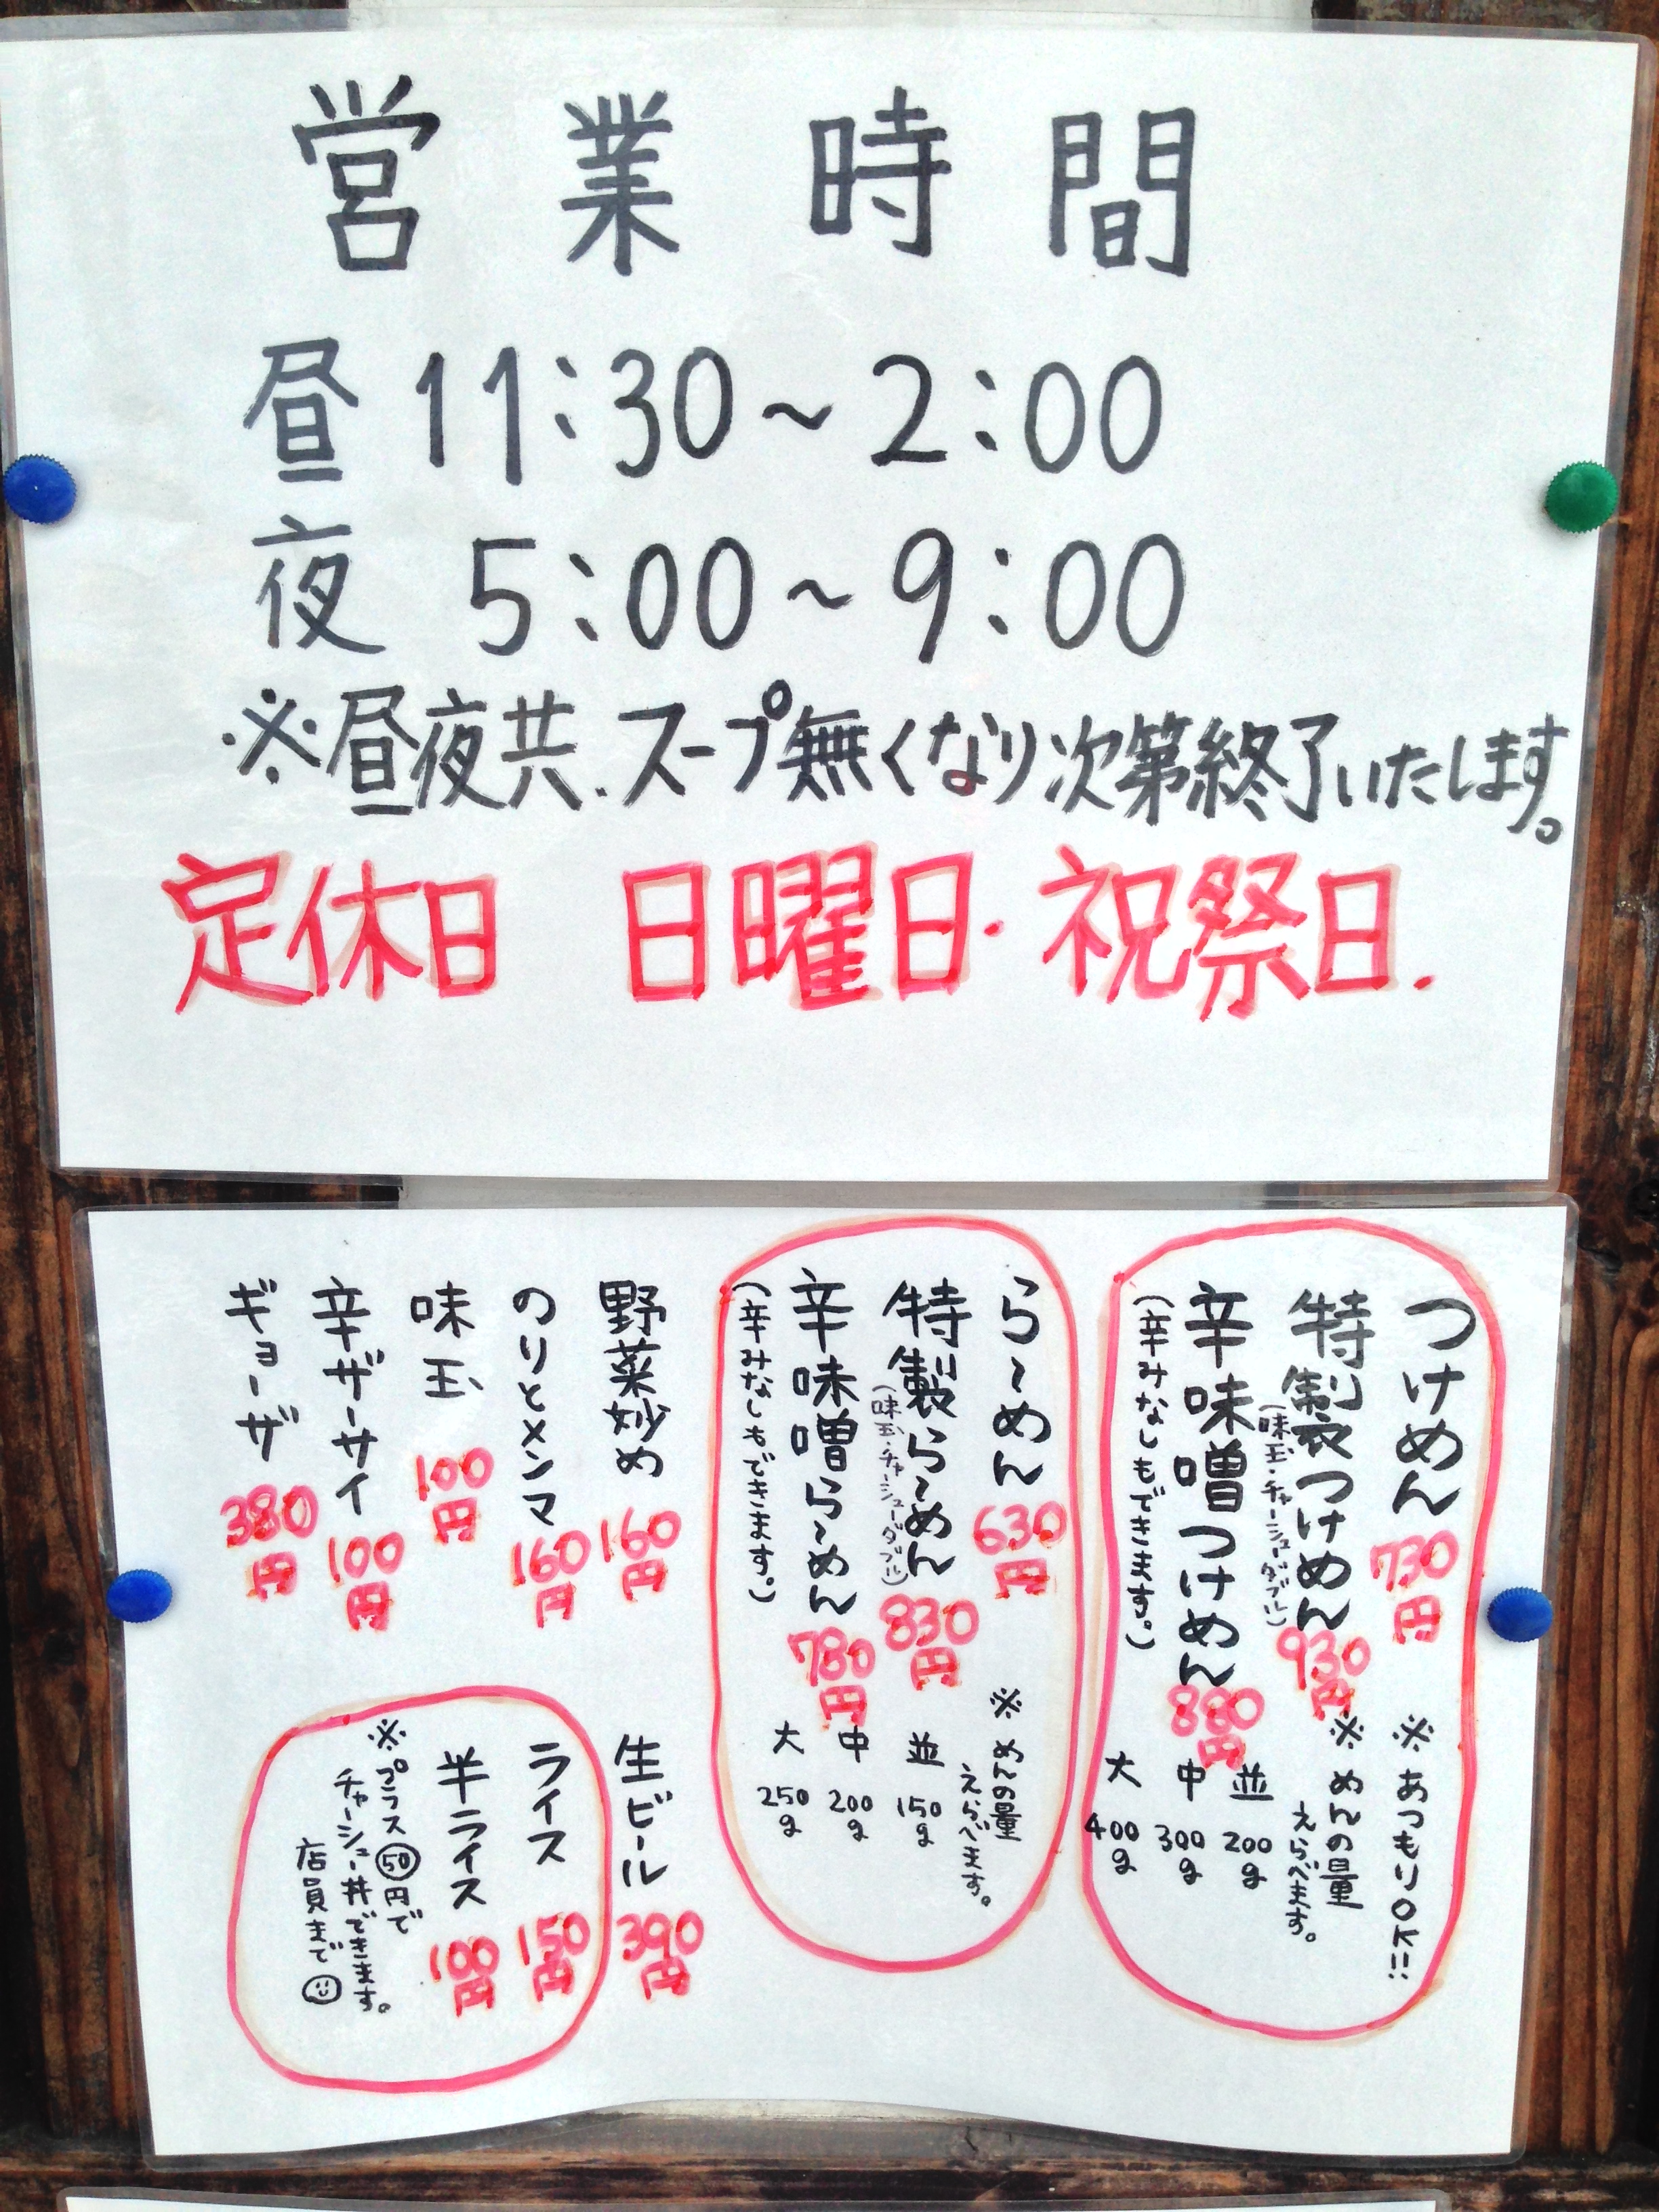 営業時間
昼 11:30~2:00
夜 5:00~9:00
※昼夜共、スープ無くなり次第終了いたします。
定休日 日曜日・祝祭日.
つけめん 730円
※あつもりOK!!
特製つけめん 930円
(味玉・チャーシューダブル)
※めんの量
えらべます。
辛味噌つけめん 880円
(辛みなしもできます。)
並 200g
中 300g
大 400g
ら~めん 630円
※めんの量
えらべます。
特製ら~めん 830円
(味玉・チャーシューダブル)
辛味噌ら~めん 780円
(辛みなしもできます。)
並 150g
中 200g
大 250g
野菜炒め 160円
のりとメンマ 160円
味玉 100円
辛ザーサイ 100円
ギョーザ 380円
生ビール 390円
ライス 150円
半ライス 100円
※プラス50円で
チャーシュー丼できます。
店員まで